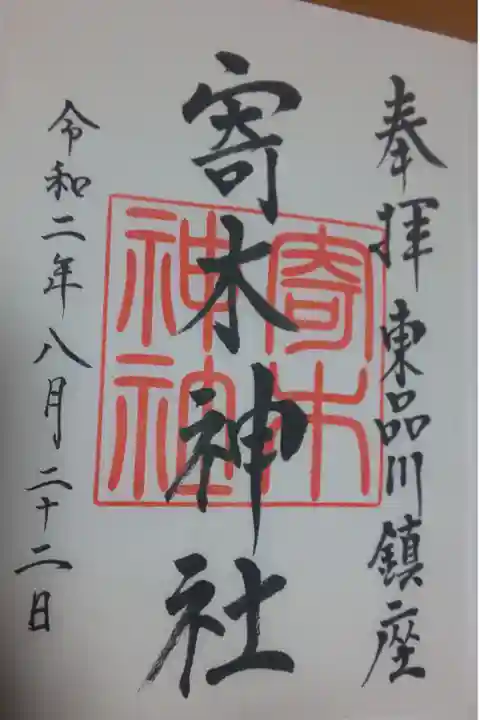 奉拝 東品川鎮座
寄木神社
寄木
神社
令和二年八月二十二日